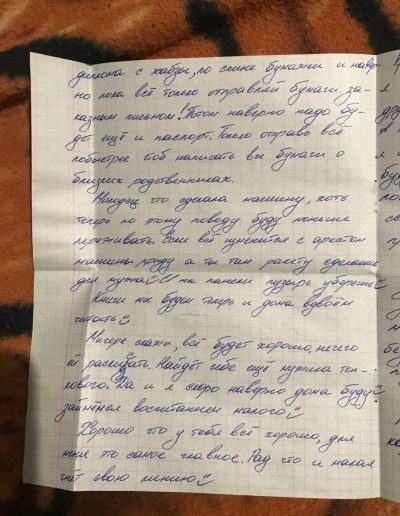 диплома с хабзы, по спине бумажки и навер-
но пока всё только отправляй бумаги за-
казным письмом! Потом наверно надо бу-
дет ещё и паспорт. Только отправь всё
побыстрее чтоб написать все бумаги о
близких родственниках.
Молодец что сделала машину, хоть
теперь по этому поводу буду меньше
переживать. Если всё изменится с арестом
машины, приду а ты там ракету сделаешь
для мужа на панели пузырь уберешь
Книги мы будем теперь и дома вдвоём
читать
Матере скажи, всё будет хорошо, нечего
ей Найдёт себе ещё мужика тол-
кового. Да и я скоро наверно дома буду
займёмся воспитанием малого.
Хорошо что у тебя всё хорошо, для
меня это самое главное. Рад что и малая
гнёт свою линию